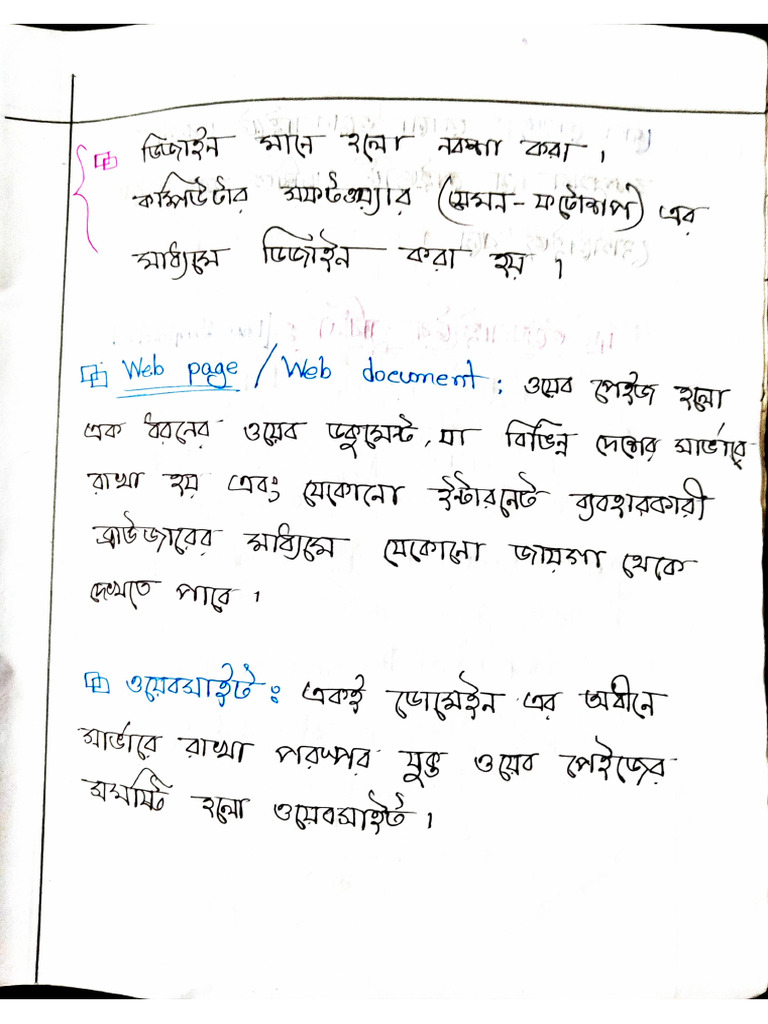 ডিজাইন মানে হলো নকশা করা ।
কম্পিউটার সফটওয়্যার (যেমন - ফটোশপ) এর
মাধ্যমে ডিজাইন করা হয় ।
Web page / Web document : ওয়েব পেইজ হলো
এক ধরনের ওয়েব ডকুমেন্ট, যা বিভিন্ন দেশের সার্ভারে
রাখা হয় এবং যেকোনো ইন্টারনেট ব্যবহারকারী
ব্রাউজারের মাধ্যমে যেকোনো জায়গা থেকে
দেখতে পাবে ।
ওয়েবসাইট : একই ডোমেইন এর অধীনে
সার্ভারে রাখা পরস্পর যুক্ত ওয়েব পেইজের
সমষ্টি হলো ওয়েবসাইট ।